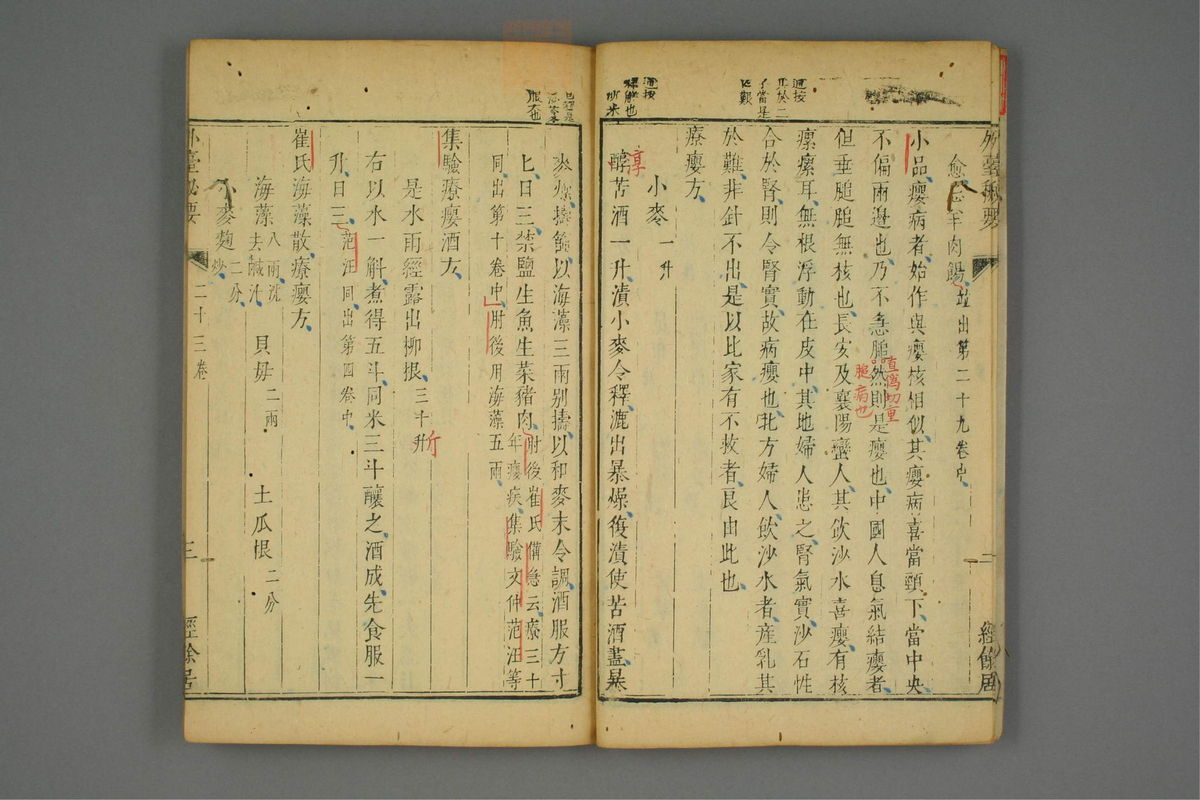 外臺秘要
愈忌羊肉餳並出第二十九卷中
小品癭病者始作與癭核相似其癭病喜當頸下當中央
不偏兩邊也乃不急膇然則是癭也中國人息氣結癭者
但垂膇膇無核也長安及襄陽蠻人其飲沙水喜癭有核
瘰瘰耳無根浮動在皮中其地婦人患之腎氣實沙石性
合於腎則令腎實故病癭也北方婦人飲沙水者產乳其
於難非針不出是以比家有不救者良由此也
療癭方
小麥一升
醇苦酒一升漬小麥令釋漉出暴燥復漬使苦酒盡暴
二
經餘居
直偽切重
膇病也
麥燥擣篩以海藻三兩別擣以和麥末令調酒服方寸
匕日三禁鹽生魚生菜豬肉肘後崔氏備急云療三十
年癭疾集驗文仲范汪等
同出第十卷中肘後用海藻五兩
集驗療癭酒方
是水雨經露出柳根三十升
斤
右以水一斛煮得五斗同米三斗釀之酒成先食服一
升日三范汪同出第四卷中
崔氏海藻散療癭方
海藻八兩洗去鹹汁
貝母二兩
土瓜根二分
小麥麴二分炒
外臺秘要
二十三卷
三
經餘居